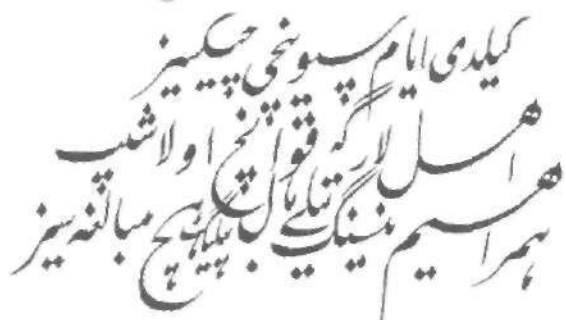 کیلدی ایام سیوینچی چیکسیز
اهل لارگه قوانچ اولاشیب
همراهیم نینگ تیلے بال هیچ مبالغه سیز